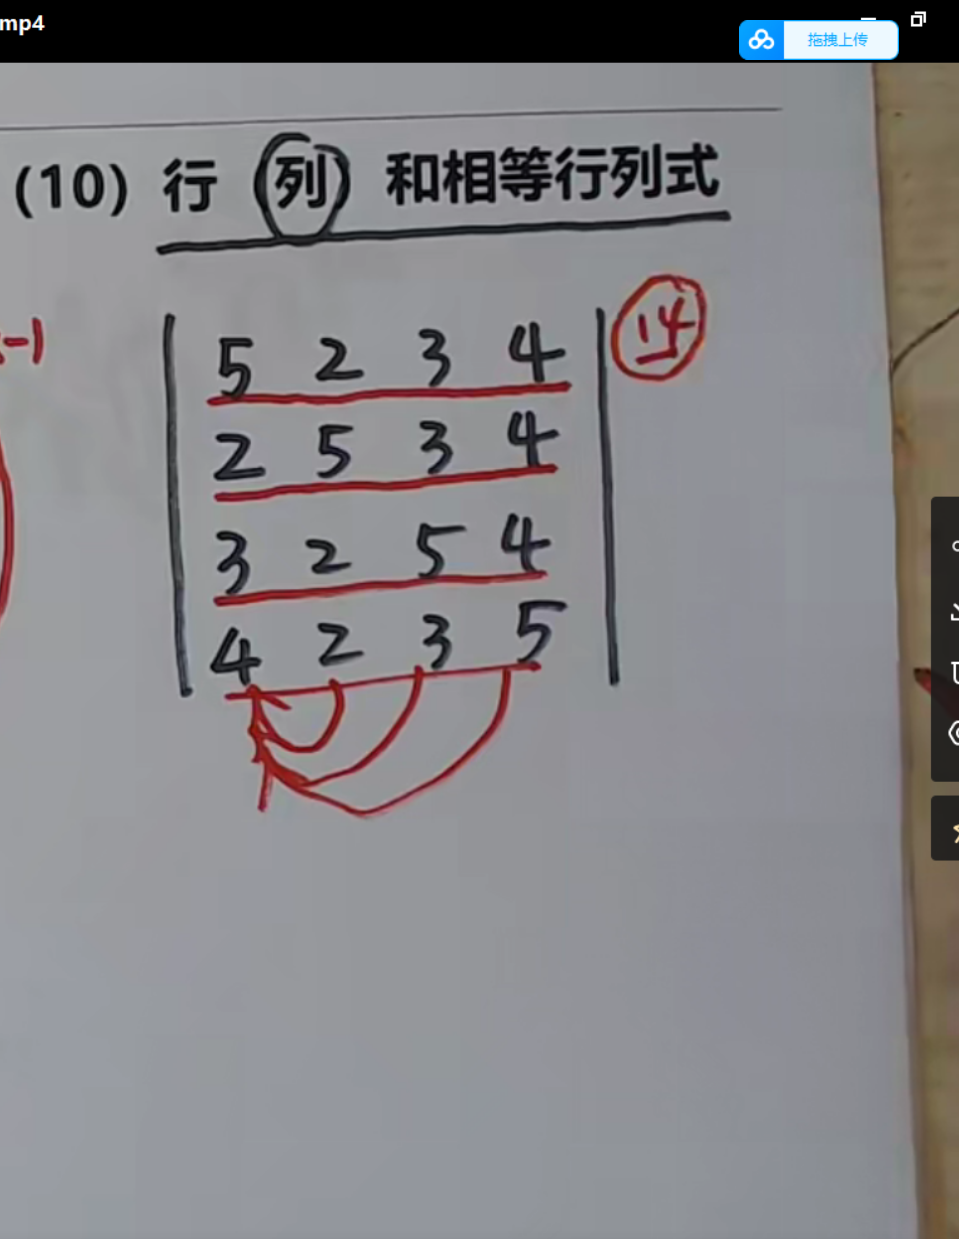 mp4
拖拽上传
(10) 行 (列) 和相等行列式
-1
5 2 3 4 14
2 5 3 4
3 2 5 4
4 2 3 5